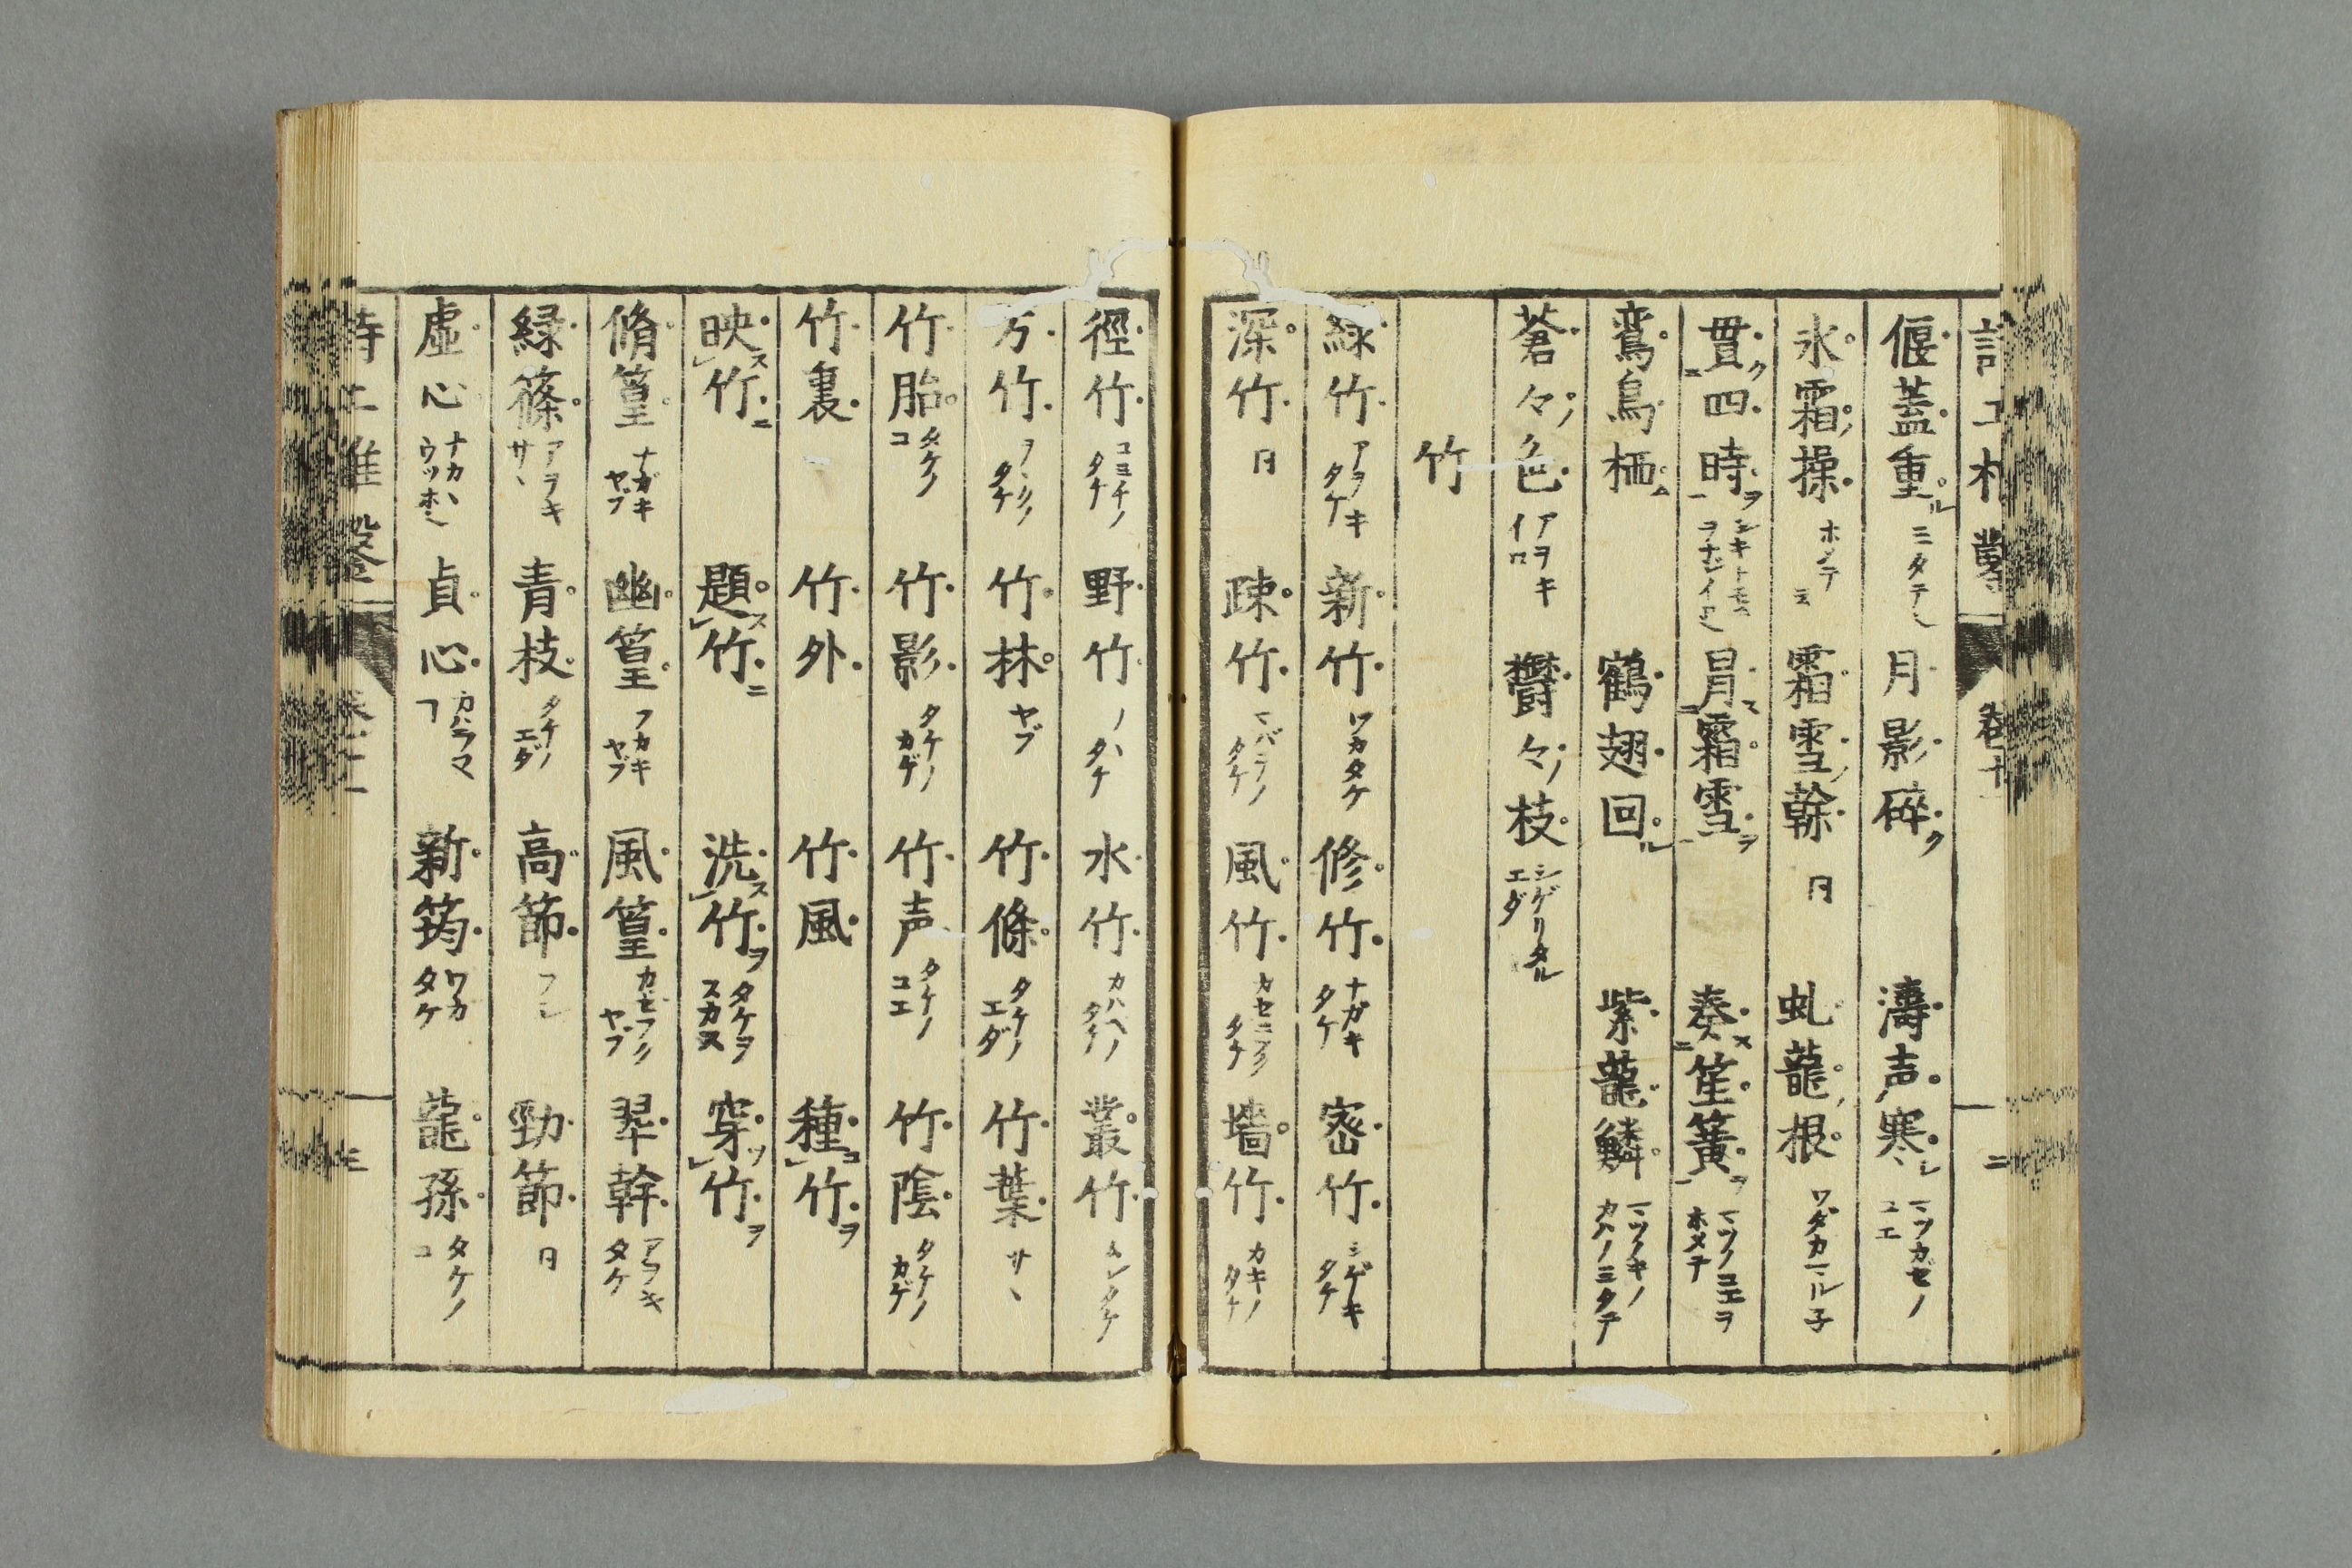 偃蓋重ル ミタテ也 月影碎ク 濤声寒シ マツカゼノコエ
氷霜ノ操 ホメテ云 霜雪ノ幹 同 虬龍ノ根 ワダカマル子
貫ク二四時一ヲ シキトモニヲナジイロ也 冐ス二霜雪一ヲ 奏ス二笙簧一ヲ マツノコエヲホメテ
鸞鳥栖ム 鶴翅回ル 紫龍鱗 マツノキノカハノミタテ
蒼々ノ色 アヲキイロ 欝々ノ枝 シゲリタルエダ
竹
緑竹 アヲキタケ 新竹 ワカタケ 修竹 ナガキタケ 宻竹 シゲキタケ
深竹 同 疎竹 マバラノタケ 風竹 カセニフクタケ 墻竹 カキノタケ
徑竹 コミチノタケ 野竹 ノハタケ 水竹 カハヘノタケ 叢竹
万竹 ヲヽクノタケ 竹林 ヤブ 竹條 タケノエダ 竹葉 サヽ
竹胎 タケノコ 竹影 タケノカゲ 竹声 タケノコエ 竹陰 タケノカゲ
竹裏 竹外 竹風 種ユ竹ヲ
映ス竹ニ 題ス竹ニ 洗ス竹ヲ タケヲスカス 穿ツ竹ヲ
脩篁 ナガキヤブ 幽篁 フカキヤブ 風篁 カゼフクヤブ 翠幹 アヲキタケ
緑篠 アヲキサヽ 青枝 タケノエダ 高節 フシ 勁節 同
虚心 ナカハウツホ也 貞心 新筠 ワカタケ 龍孫 タケノコ